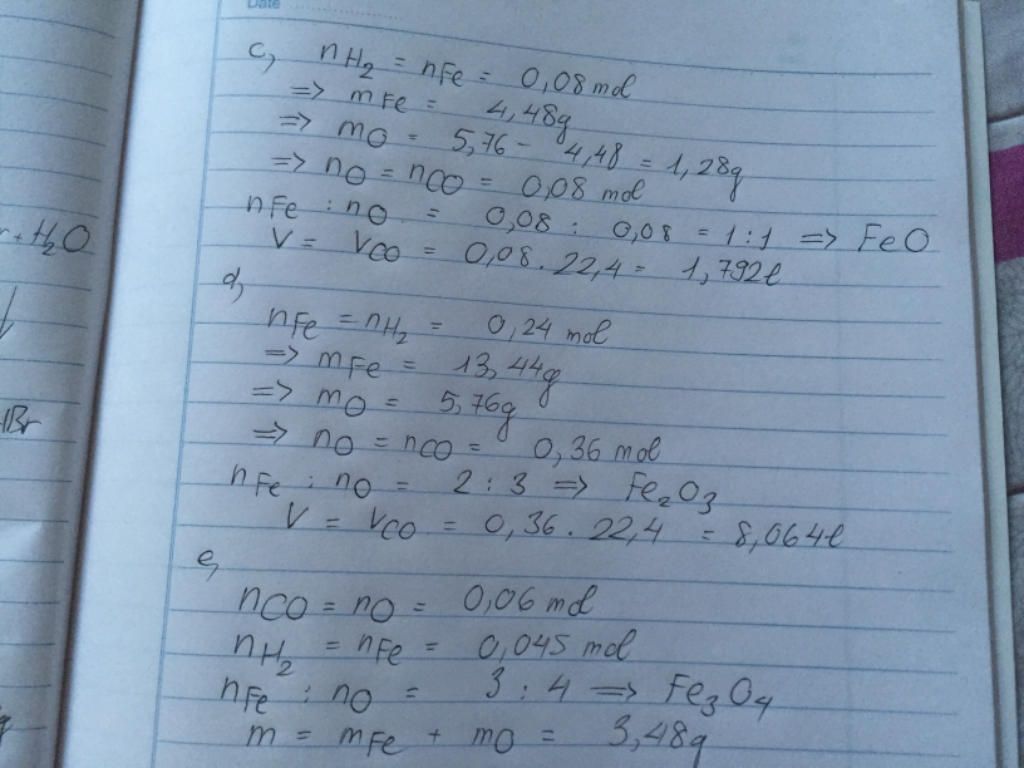 Date
c, nH2 = nFe = 0,08 mol
=> mFe = 4,48g
=> mO = 5,76 - 4,48 = 1,28g
=> nO = nCO = 0,08 mol
nFe : nO = 0,08 : 0,08 = 1:1 => FeO
V = VCO = 0,08 . 22,4 = 1,792l
d,
nFe = nH2 = 0,24 mol
=> mFe = 13,44g
=> mO = 5,76g
=> nO = nCO = 0,36 mol
nFe : nO = 2 : 3 => Fe2O3
V = VCO = 0,36 . 22,4 = 8,064l
e,
nCO = nO = 0,06 mol
nH2 = nFe = 0,045 mol
nFe : nO = 3 : 4 => Fe3O4
m = mFe + mO = 3,48g
+ H2O
Br